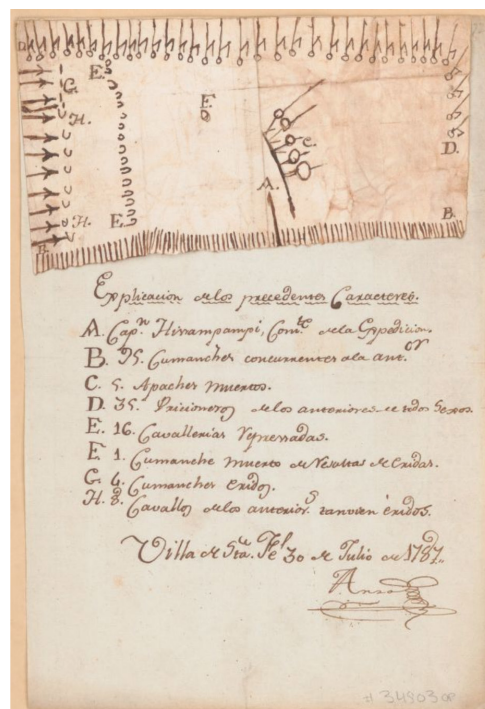 D.
G.
H.
H.
B.
E.
E.
F.
A.
C.
D.
B.
Explicacion de los precedentes Caracteres.
A. Cap.n Hisampampi, Com.te de la Expedicion.
B. 95. Cumanches concurrentes ala ant.or
C. 5. Apaches muertos.
D. 35. Pricioneros de los anteriores de todos Sexos.
E. 16. Cavallerias represadas.
F. 1. Cumanche muerto de resultas de Eridas.
G. 6. Cumanches eridos.
H. 8. Cavallos de los anterior.s tanvien éridos.
Villa de Sta. Fé 30 de Julio de 1787.
Anza